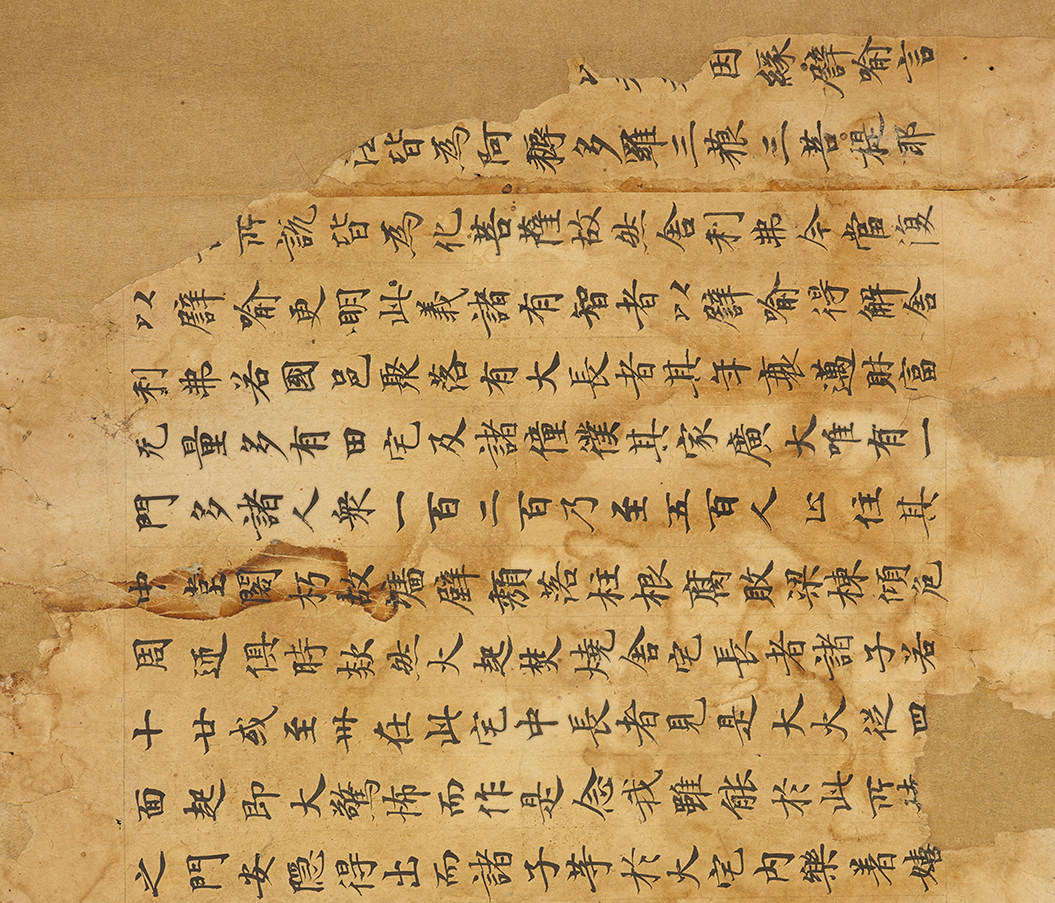 因緣譬喻言
皆為阿耨多羅三藐三菩提耶
所說皆為化菩薩故然舍利弗今當復
以譬喻更明此義諸有智者以譬喻得解舍
利弗若國邑聚落有大長者其年衰邁財富
无量多有田宅及諸僮僕其家廣大唯有一
門多諸人衆一百二百乃至五百人止住其
中堂閣朽故墻壁頹落柱根腐敗梁棟傾危
周迊俱時欻然火起焚燒舍宅長者諸子若
十廿或至卅在此宅中長者見是大火從四
面起即大驚怖而作是念我雖能於此所燒
之門安隱得出而諸子等於火宅內樂著嬉